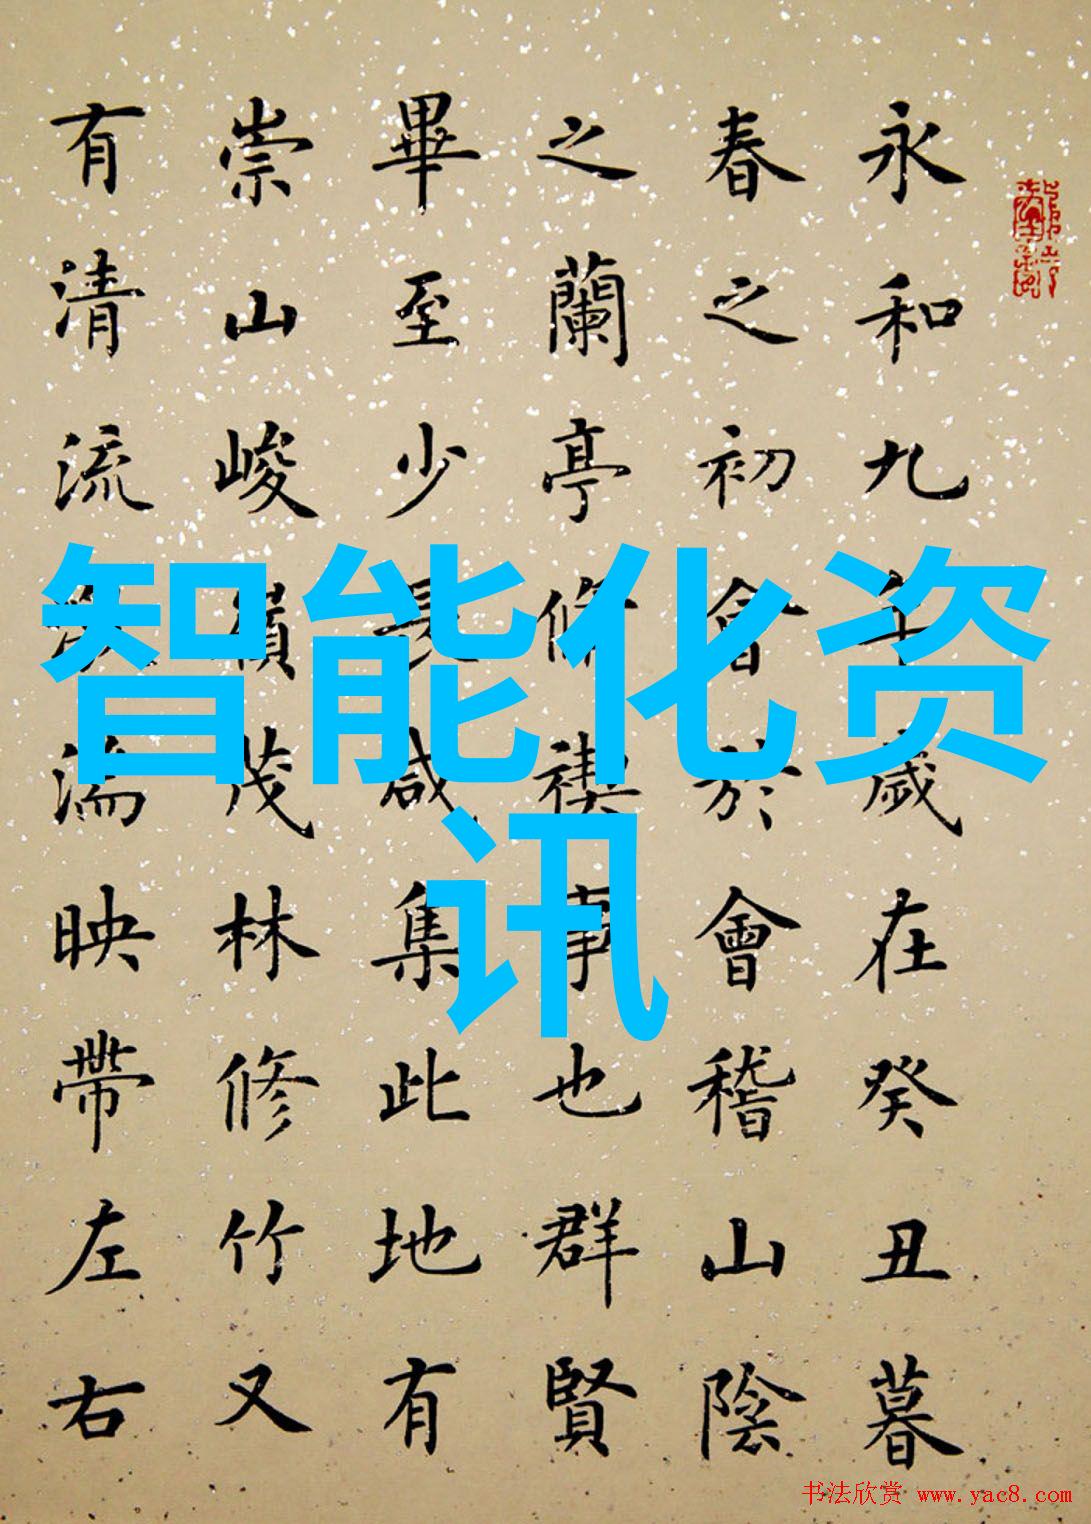 永和九年歲在癸丑暮
春之初會於會稽山陰
之蘭亭脩禊事也群賢
畢至少長咸集此地有
崇山峻嶺茂林修竹又
有清流激湍映帶左右
智能化资
讯
书法欣赏 www.yac8.com